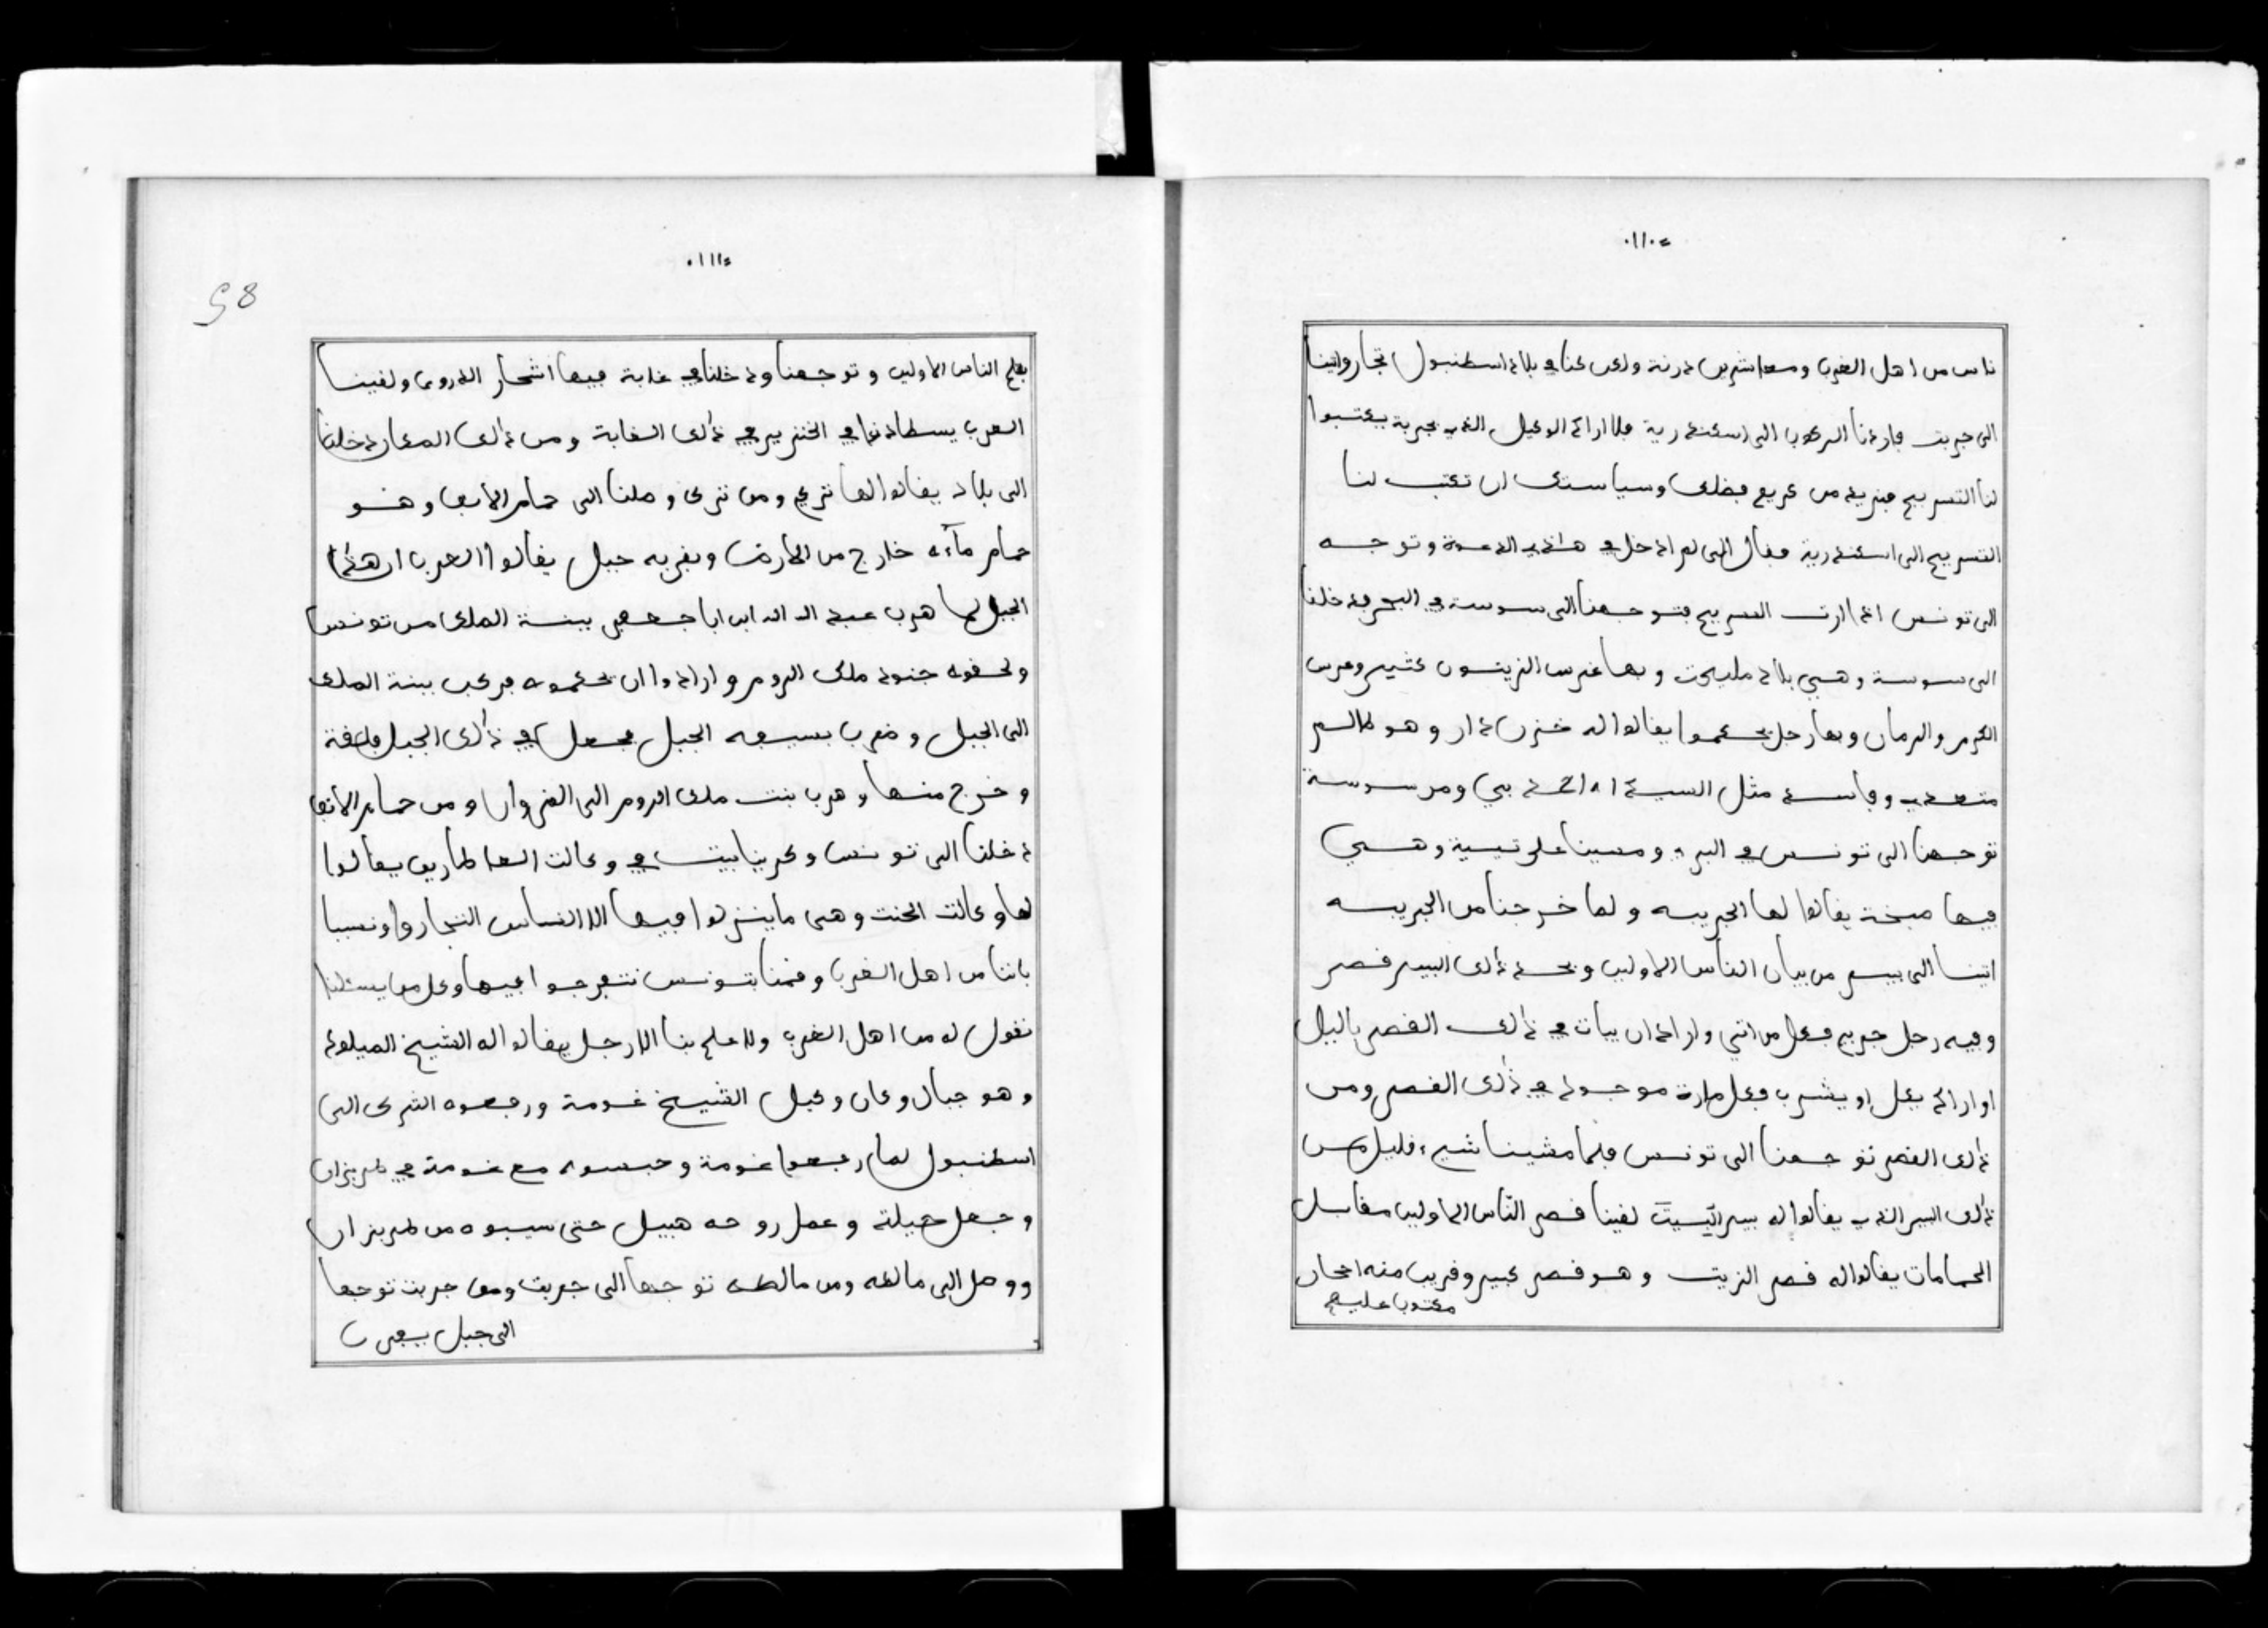 ٠١١٠
ناس من اهل الغرب ومعاشرين درنة ولكن كنا في بلاد اسطنبول تجار واتينا
الى جربت فاردنا الركوب الى اسكندرية فلا اراد الوكيل الذي بجربة يكتبوا
لنا التسريح فنريد من كريم فضلك وسياستك ان تكتب لنا
التسريح الى اسكندرية فقال الى لم ادخل في هاذي الدعوة وتوجه
الى تونس اذا ارت التسريح فتوجهنا الى سوسة في البحر فدخلنا
الى سوسة وهي بلاد مليحت وبها غرس الزيتون كثير وغرس
الكرم والرمان وبها رجل يحكموا يقالوا له خزن دار وهو ظالم
متعدي وفاسد مثل السيد احمد بي ومن سوسة
توجهنا الى تونس في البر ومسينا على تيسية وهي
فيها صبخة يقالوا لها الجريبه ولما خرجنا من الجريبه
اتينا الى بير من بيان الناس الاولين ونحد ذلك البير قصر
وفيه رجل جربي فكل من اتي واراد ان يبات في ذلك القصر باليل
او اراد ياكل او يشرب فكل مارة موجود في ذلك القصر ومن
ذلك القصر توجهنا الى تونس فلما مشينا شيء قليل من
ذلك البير الذي يقالوا له بير البيت لقينا قصر النّاس الاولين مقابل
الحمامات يقالوا له قصر الزيت وهو قصر كبير وقريب منه احجار
مكتوب عليهم
٠١١١
58
بقلم الناس الاولين وتوجهنا ودخلنا في غابة فيها اشجار الذرو ولقينا
العرب يسطادوا في الخنزير في ذلك الغابة ومن ذلك المكان دخلنا
الى بلاد يقالوا لها تركي ومن تركي وصلنا الى حمام الانف وهو
حمام مآءه خارج من الارض وبقربه جبل يقالوا العرب ان هذا
الجبل لما هرب عبد الله ابن ابا جعفر ببنة الملك من تونس
ولحقوه جنود ملك الروم وارادوا ان يحكموه فركب ببنة الملك
الى الجبل وضرب بسيفه الجبل فجعل في ذلك الجبل طاقة
وخرج منها وهرب بنت ملك الروم الى القيروان ومن حمام الانف
دخلنا الى تونس وكرينا بيت في وكالت العطارين يقالوا
لها وكالت الحنت وهي ما ينزلوا فيها الا الناس التجار واونسبنا
باننا من اهل الغرب وقمنا بتونس نتفرجوا فيها وكل من يسئلنا
نقول له من اهل الغرب ولا علم بنا الا رجل يقالوا له الشيخ الميلود
وهو جبالي وكان وكيل الشيخ غومة ورفعوه الترك الى
اسطنبول لما رفعوا غومة وحبسوه مع غومة في طربزان
وجعل حيلة وعمل روحه هبيل حتى سيبوه من طربزان
ووصل الى مالطه ومن مالطه توجها الى جربت ومن جربت توجها
الى جبل يفرن